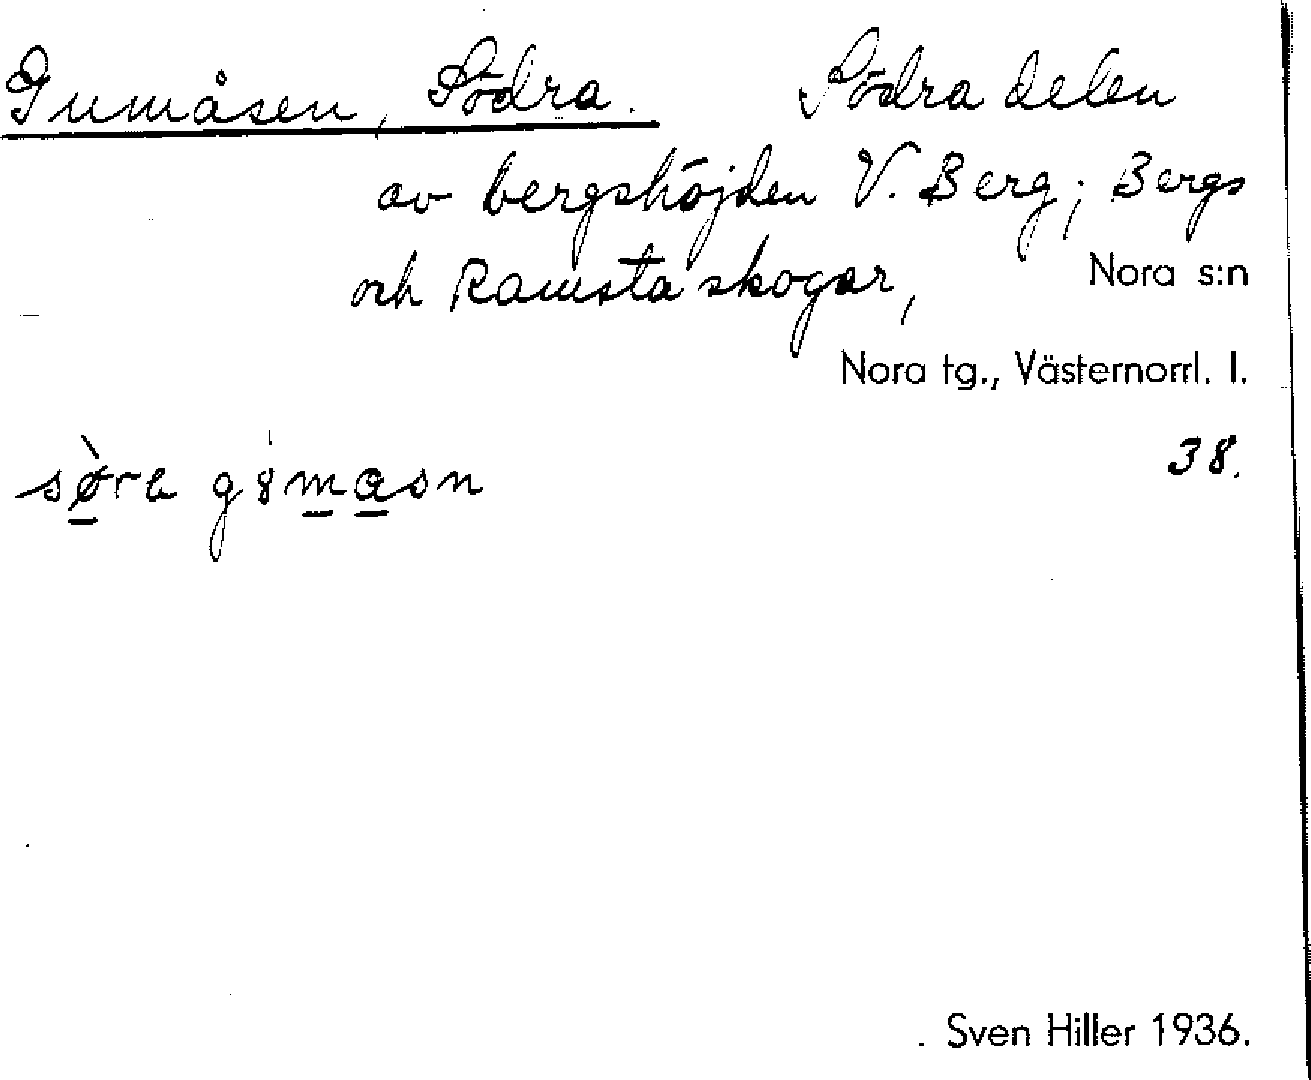 Gumåsen, Södra. Södra delen
av bergshöjden V. Berg; Bergs
och Ramsta skogar, Nora s:n
Nora tg., Västernorrl. l.
38.
Sven Hiller 1936.